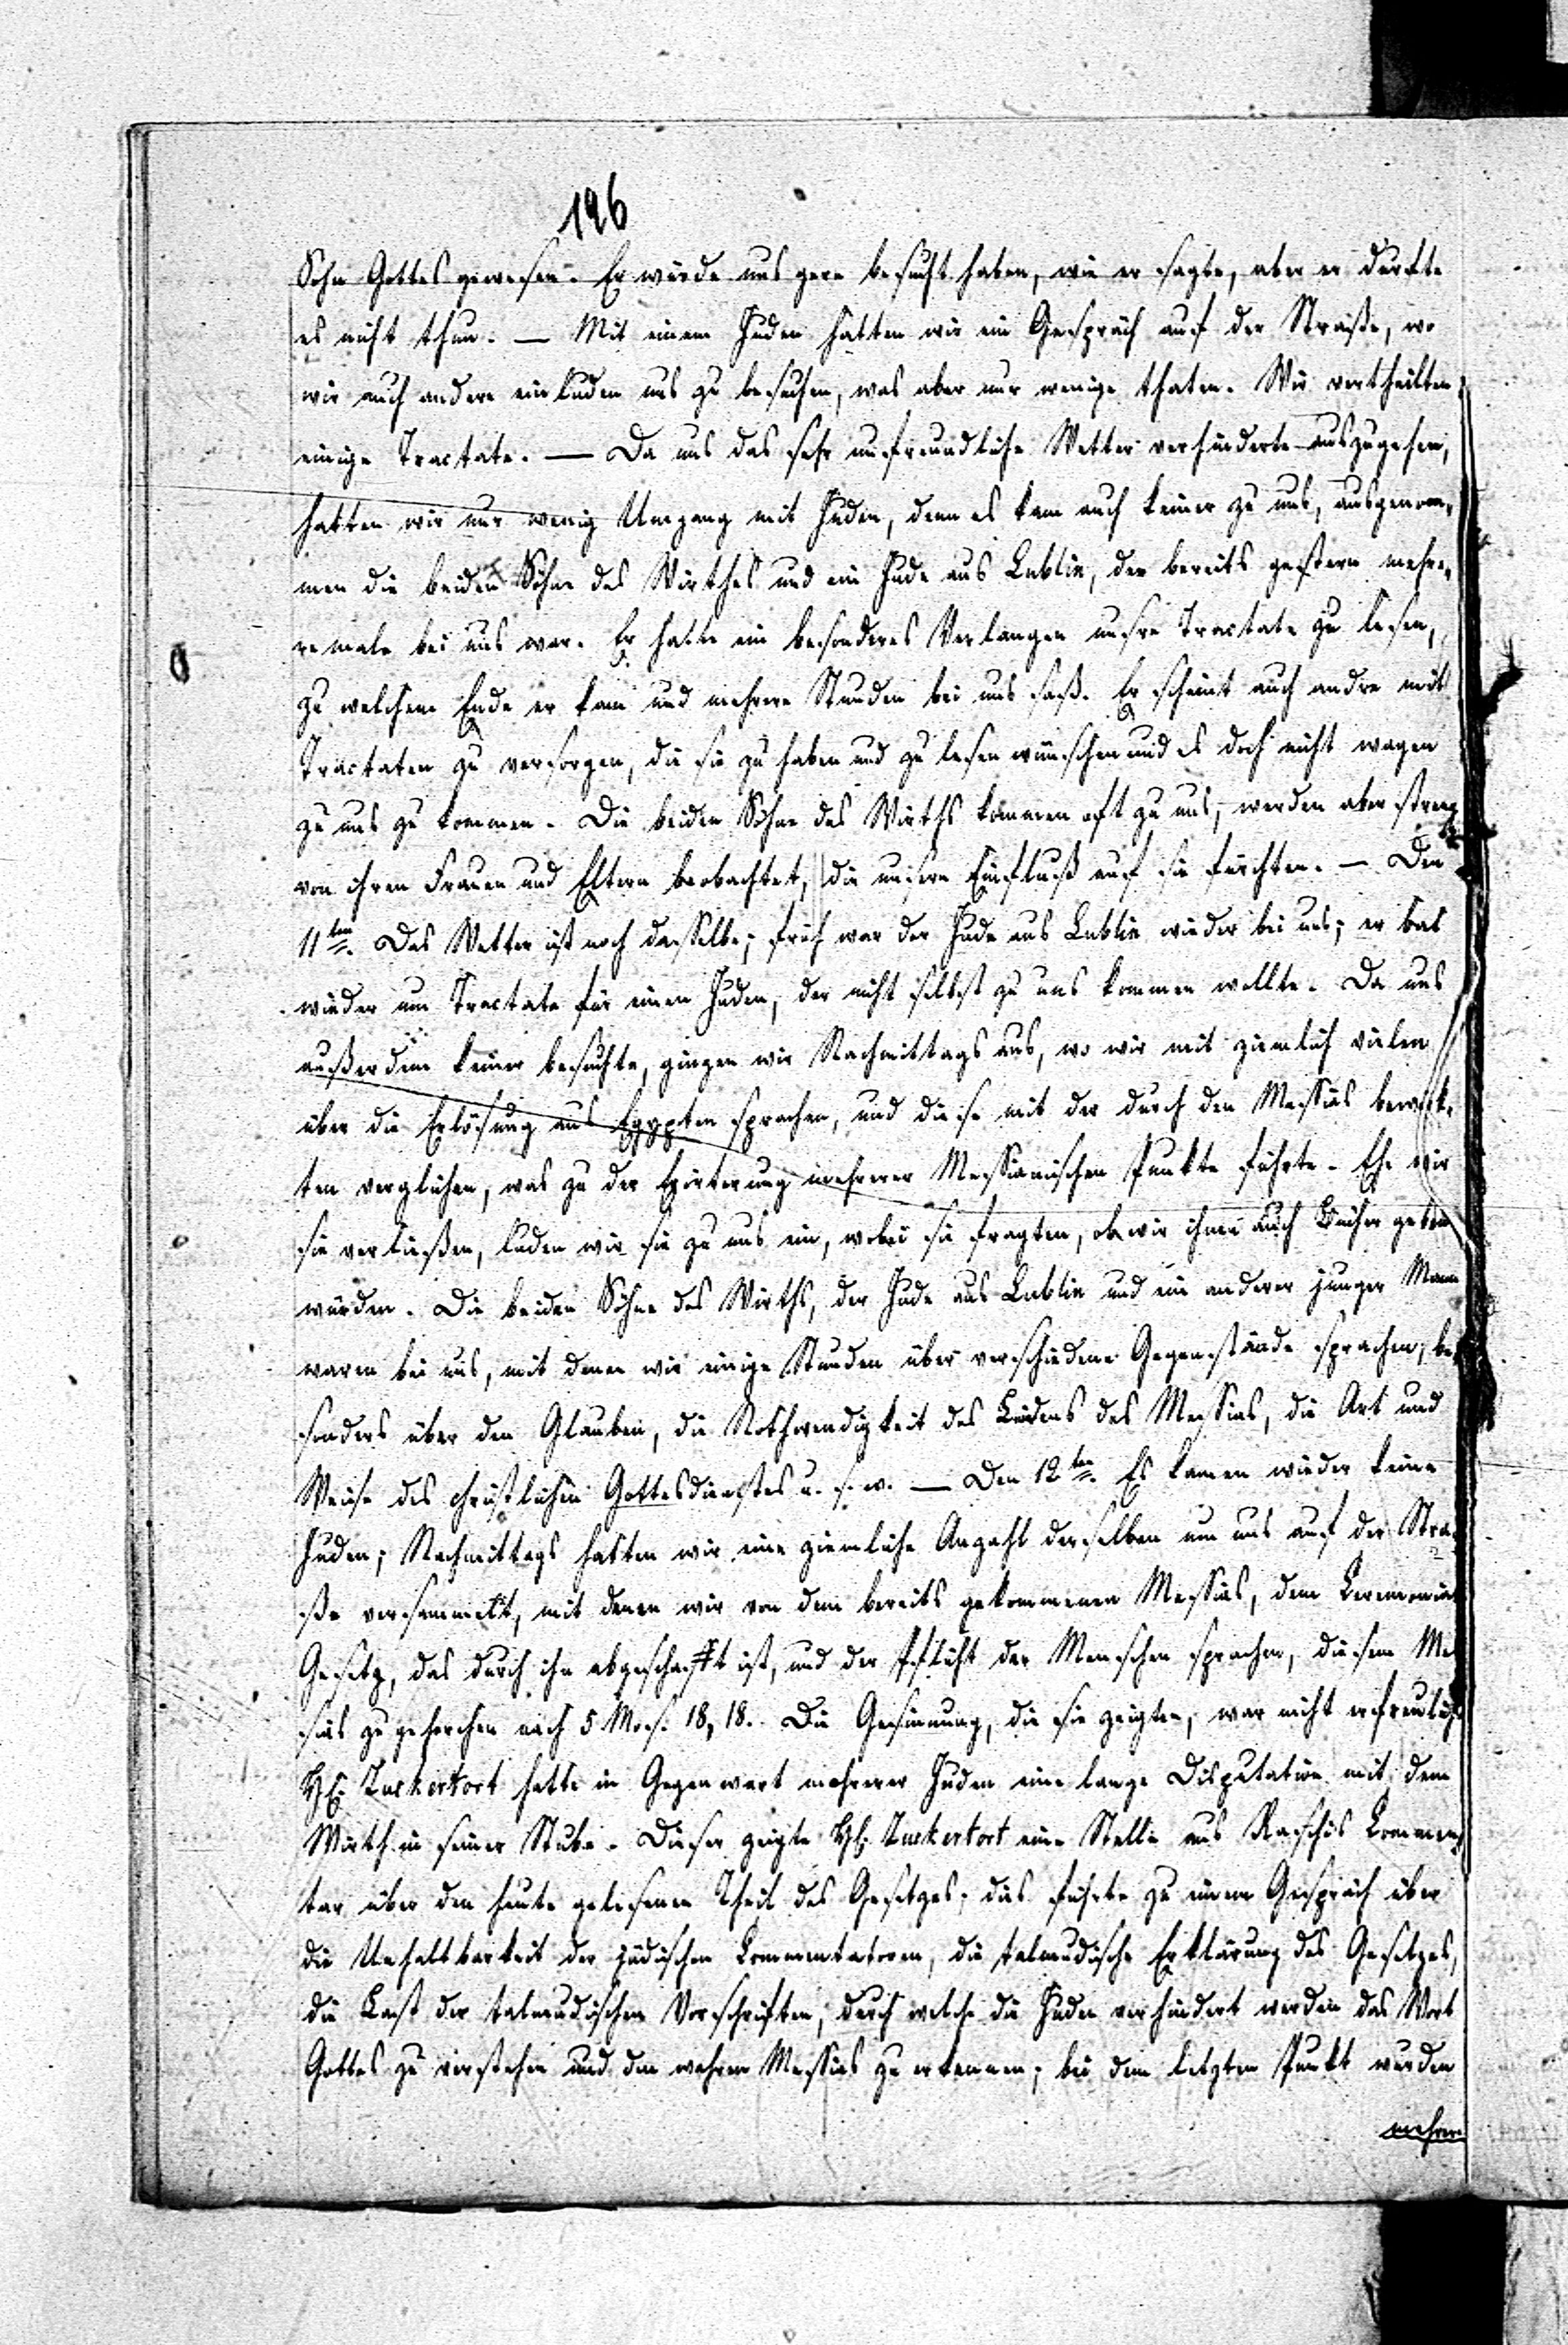 126
Sohn Gottes gewesen. Er würde uns gern besucht haben, wie er sagte, aber er durfte
es nicht thun. — Mit einem Juden hatten wir ein Gespräch auf der Straße, wo
wir auch andere einluden uns zu besuchen, was aber nur wenige thaten. Wir vertheilten
einige Tractate. — Da uns das sehr unfreundliche Wetter verhinderte auszugehen,
hatten wir nur wenig Umgang mit Juden, denn es kam auch keiner zu uns, ausgenom-
men die beiden Söhne des Wirthes und ein Jude aus Lublin, der bereits gestern mehre-
remale bei uns war. Er hatte ein besonderes Verlangen unsre Tractate zu lesen,
zu welchem Ende er kam und mehrere Stunden bei uns saß. Er scheint auch andre mit
Tractaten zu versorgen, die sie zu haben und zu lesen wünschen und es doch nicht wagen
zu uns zu kommen. Die beiden Söhne des Wirths kommen oft zu uns, werden aber streng
von ihren Frauen und Eltern beobachtet, die unsern Einfluß auf sie fürchten. — Den
11ten. Das Wetter ist noch dasselbe; früh war der Jude aus Lublin wieder bei uns; er bat
wieder um Tractate für einen Juden, der nicht selbst zu uns kommen wollte. Da uns
außerdem keiner besuchte, gingen wir Nachmittags aus, wo wir mit ziemlich vielen
über die Erlösung aus Egypten sprachen, und diese mit der durch den Messias bewirk-
ten verglichen, was zu der Erörterung mehrerer Messianischen Punkte führte. Ehe wir
sie verließen, luden wir sie zu uns ein, wobei sie fragten, ob wir ihnen auch Bücher geben
würden. Die beiden Söhne des Wirths, der Jude aus Lublin und ein anderer junger Mann
waren bei uns, mit denen wir einige Stunden über verschiedene Gegenstände sprachen, be-
sonders über den Glauben, die Nothwendigkeit des Leidens des Messias, die Art und
Weise des christlichen Gottesdienstes u. s. w. — Den 12ten. Es kamen wieder keine
Juden; Nachmittags hatten wir eine ziemliche Anzahl derselben um uns auf der Stra-
ße versammelt, mit denen wir von dem bereits gekommenen Messias, dem Ceremonial
Gesetz, das durch ihn abgeschafft ist, und der Pflicht der Menschen sprachen, diesem Mes-
sias zu gehorchen nach 5 Mos. 18, 18. Die Gesinnung, die sie zeigten, war nicht erfreulich.
H. Zuckertort hatte in Gegenwart mehrerer Juden eine lange Disputation mit dem
Wirth in seiner Stube. Dieser zeigte H. Zuckertort eine Stelle aus Raschis Commen-
tar über den heute gelesenen Theil des Gesetzes; dies führte zu einem Gespräch über
die Unhaltbarkeit der jüdischen Commentatoren, die talmudische Erklärung des Gesetzes,
die Last der talmudischen Vorschriften, durch welche die Juden verhindert werden das Wort
Gottes zu verstehen und den wahren Messias zu erkennen; bei dem letzten Punkt wurden
mehrere